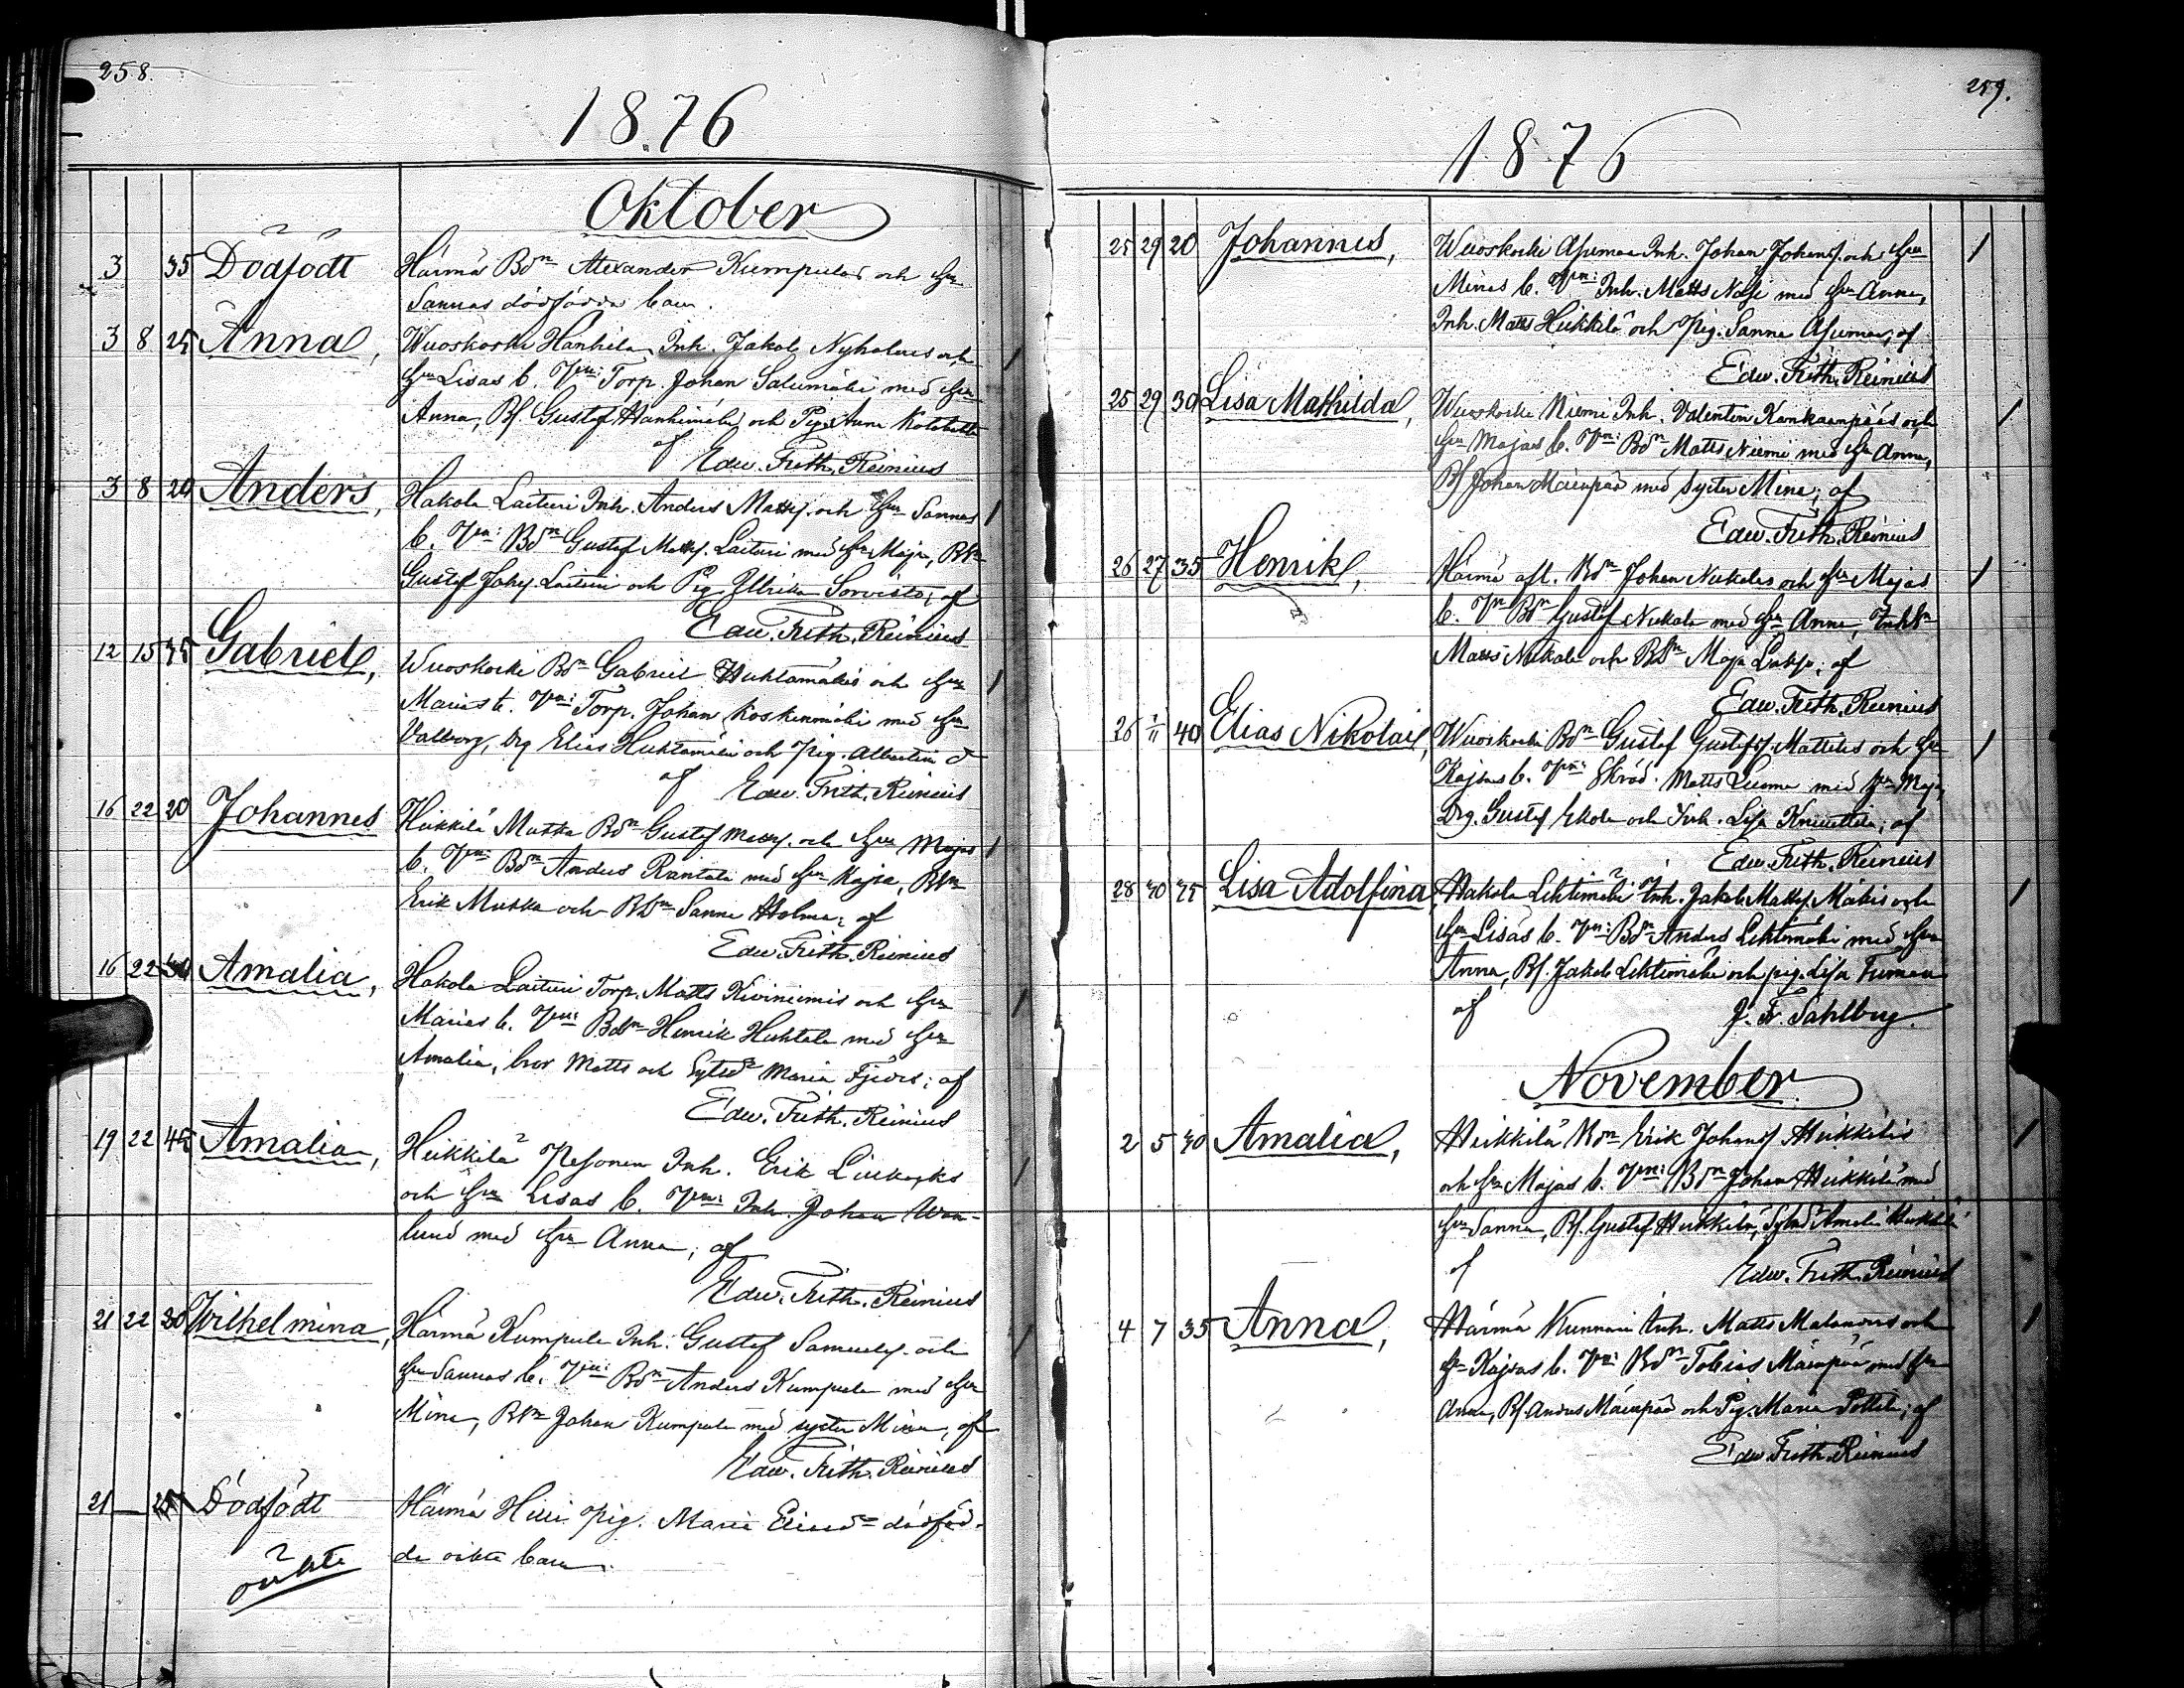 258.
1876
Oktober
3 35 Dödfödt Härmä Bdn Alexander Kumpulas och Hu
Sannas dödfödda barn.
3 8 25 Anna, Wuoskoski Hanhila Inh. Jakob Nyholms och
Hu Lisas b. Vn: Torp. Johan Salumäki med Hu
Anna, Bs. Gustaf Hanhimäki och Pig. Anna
af Edw. Frith. Reinius
3 8 20 Anders, Hakola Laituri Inh. Anders Matts. och Hu Sannas
b. Vn: Bdn Gustaf Matts. Laituri med Hu Maja,
Gustaf Johs. Laituri och Pig. Ullrika Sorvisto; af
Edw. Frith. Reinius
12 15 35 Gabriel, Wuoskoski Bdn Gabriel Huhtamäkis och Hu
Marias b. Vn: Torp. Johan Koskenmäki med Hu
Valborg, Drg Elias Huhtamäki och Pig. Albertina
af Edw. Frith. Reinius
16 22 20 Johannes Heikkilä Mutka Bdn Gustaf Matts. och Hu Majas
b. Vn: Bdn Anders Rantala med Hu Kajsa,
Erik Mutka och Sanna Holma; af
Edw. Frith. Reinius
16 22 Amalia, Hakola Laituri Torp. Matts Kiviniemis och Hu
Marias b. Vn: Bdn Henrik Huhtala med Hu
Amalia, bror Matts och Maria; af
Edw. Frith. Reinius
19 22 Amalia, Heikkilä Pesonen Inh. Erik
och Hu Lisas b. Vn: Inh. Johan Wen-
lund med Hu Anna; af
Edw. Frith. Reinius
21 22 20 Wilhelmina, Härmä Kumpula Inh. Gustaf Samuels. och
Hu Sannas b. Vn: Bdn Anders Kumpula med Hu
Mina, Johan Kumpula med syster Mina, af
Edw. Frith. Reinius
21 — 25 Dödfödt Härmä Pig. Maria Eliasd. dödföd-
oäkta da oäkta barn.
259.
1876
25 29 20 Johannes, Wuoskoski Asumaa Inh. Johan Johans. och Hu
Minas b. Vn: Inh. Matts med Hu Anna,
Inh. Matts Heikkilä och Pig. Sanna Asumaa; af
Edw. Frith. Reinius
25 29 30 Lisa Mathilda, Wuoskoski Niemi Inh. Valentin Kankaanpääs och
Hu Majas b. Vn: Bdn Matts Niemi med Hu Anna,
Bs Johan Mäenpää med syster Mina; af
Edw. Frith. Reinius
26 27 35 Henrik, Härmä afl. Bdn Johan Nukalas och Hu Majas
b. Vn Bdn Gustaf Nukala med Hu Anna,
Matts Nukala och Maja; af
Edw. Frith. Reinius
26 1/11 40 Elias Nikolai, Wuoskoski Bdn Gustaf Gustafs. Mattilas och Hu
Kajsas b. Vn: Skräd. Matts Luoma med Hu Maja,
Drg. Gustaf Ekola och Inh. Lisa Knuuttila; af
Edw. Frith. Reinius
28 30 25 Lisa Adolfina, Hakola Lehtimäki Inh. Jakob Matts. Mäkis och
Hu Lisas b. Vn: Bdn Anders Lehtimäki med Hu
Anna, Bs. Jakob Lehtimäki och pig. Lisa
af J. Fr. Sahlberg.
November
2 5 30 Amalia, Heikkilä Bdn Erik Johans. Heikkiläs
och Hu Majas b. Vn: Bdn Johan Heikkilä med
Hu Sanna, Bs. Gustaf Heikkilä, Amalia Heikkilä
af Edw. Frith. Reinius
4 7 35 Anna, Härmä Kunnari Inh. Matts och
Hu Kajsas b. Vn: Bdn Tobias Mäenpää med Hu
Anna, Bs. Anders Mäenpää och Pig. Maria Pottila; af
Edw. Frith. Reinius